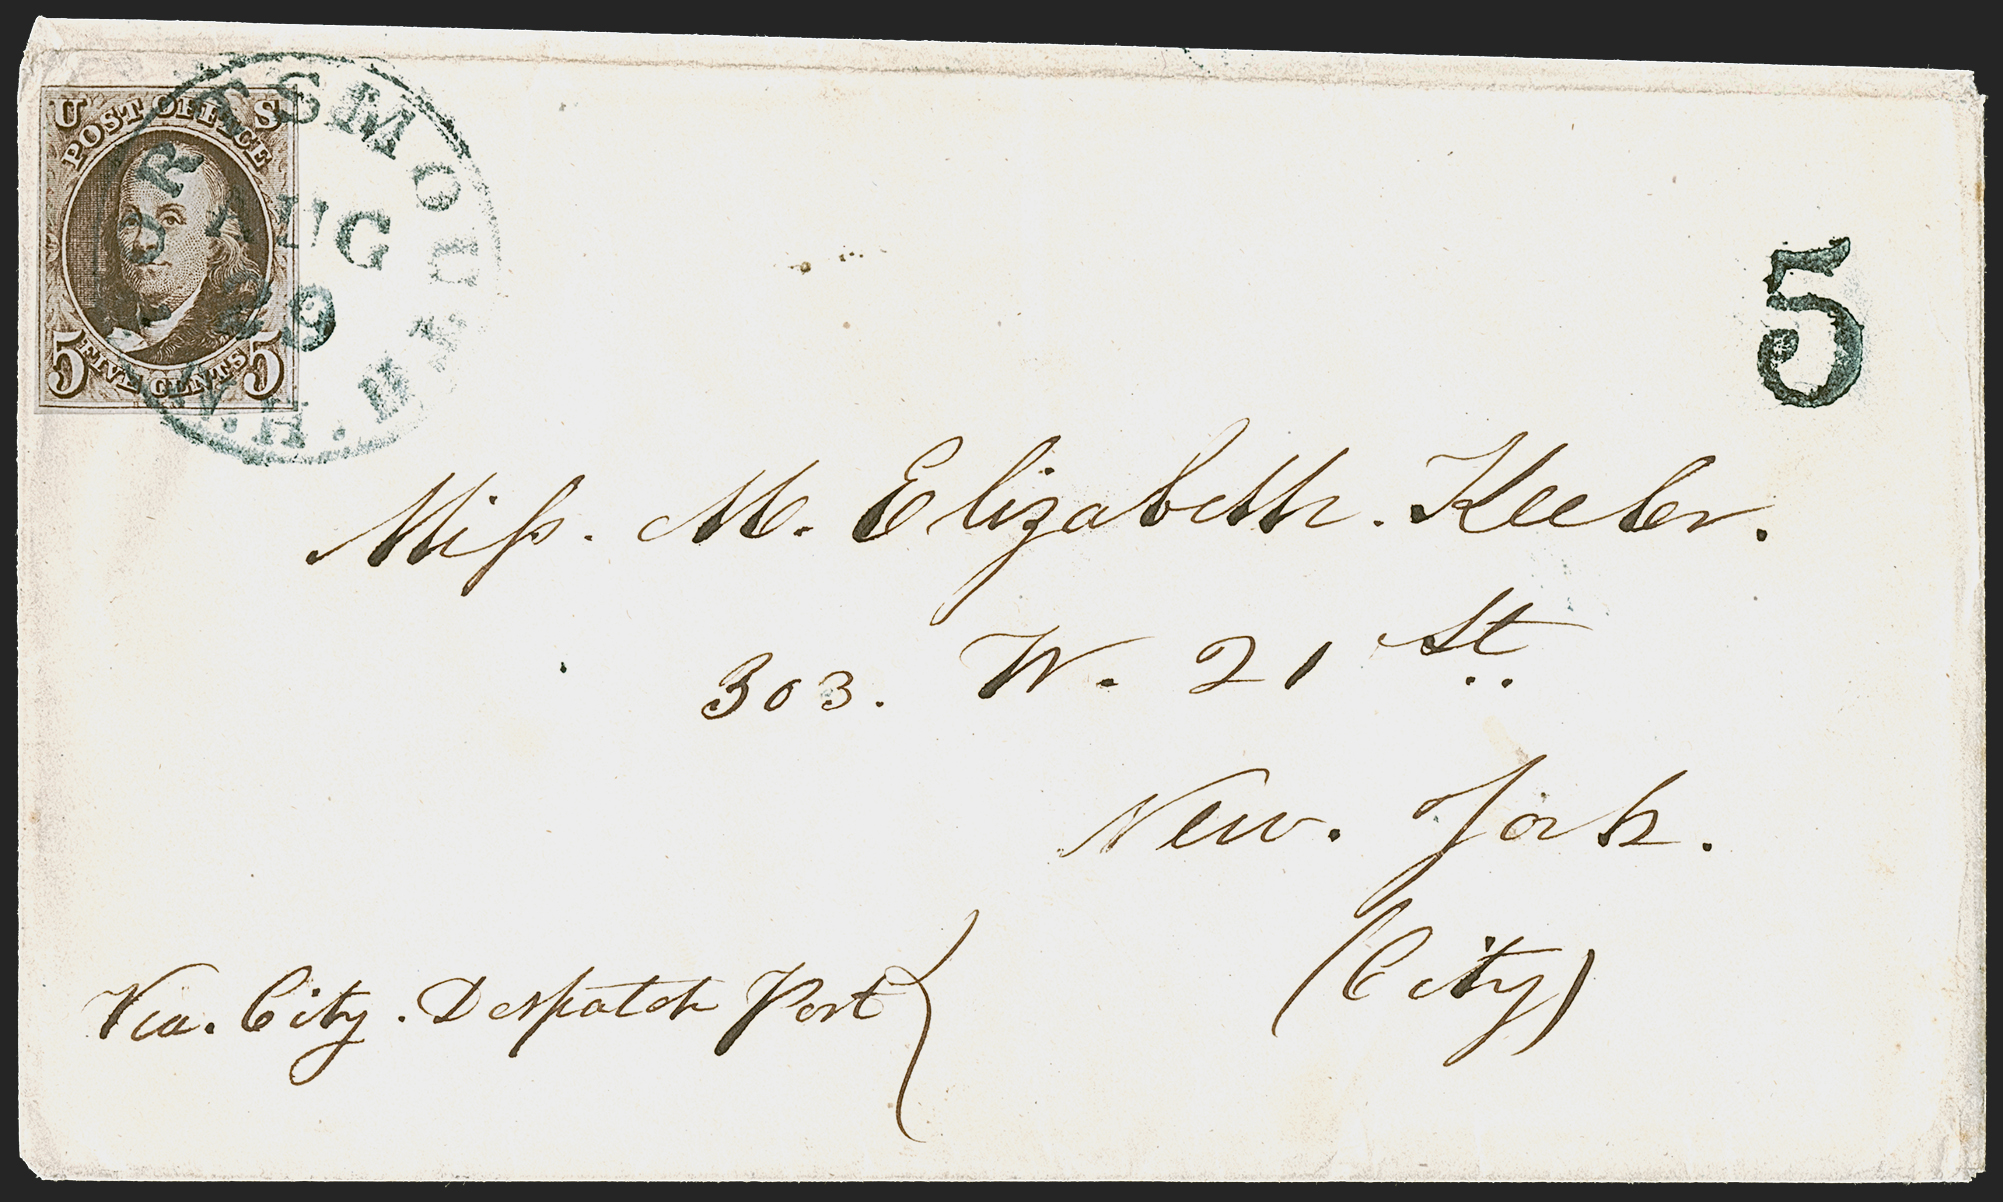 U S
POST OFFICE
5 FIVE CENTS 5
PORTSMOUTH. N.H.
AUG
29
5
Miſs. M. Elizabeth. Keeler.
303. W. 21 St.
New. York.
(City)
Via. City. Despatch Post